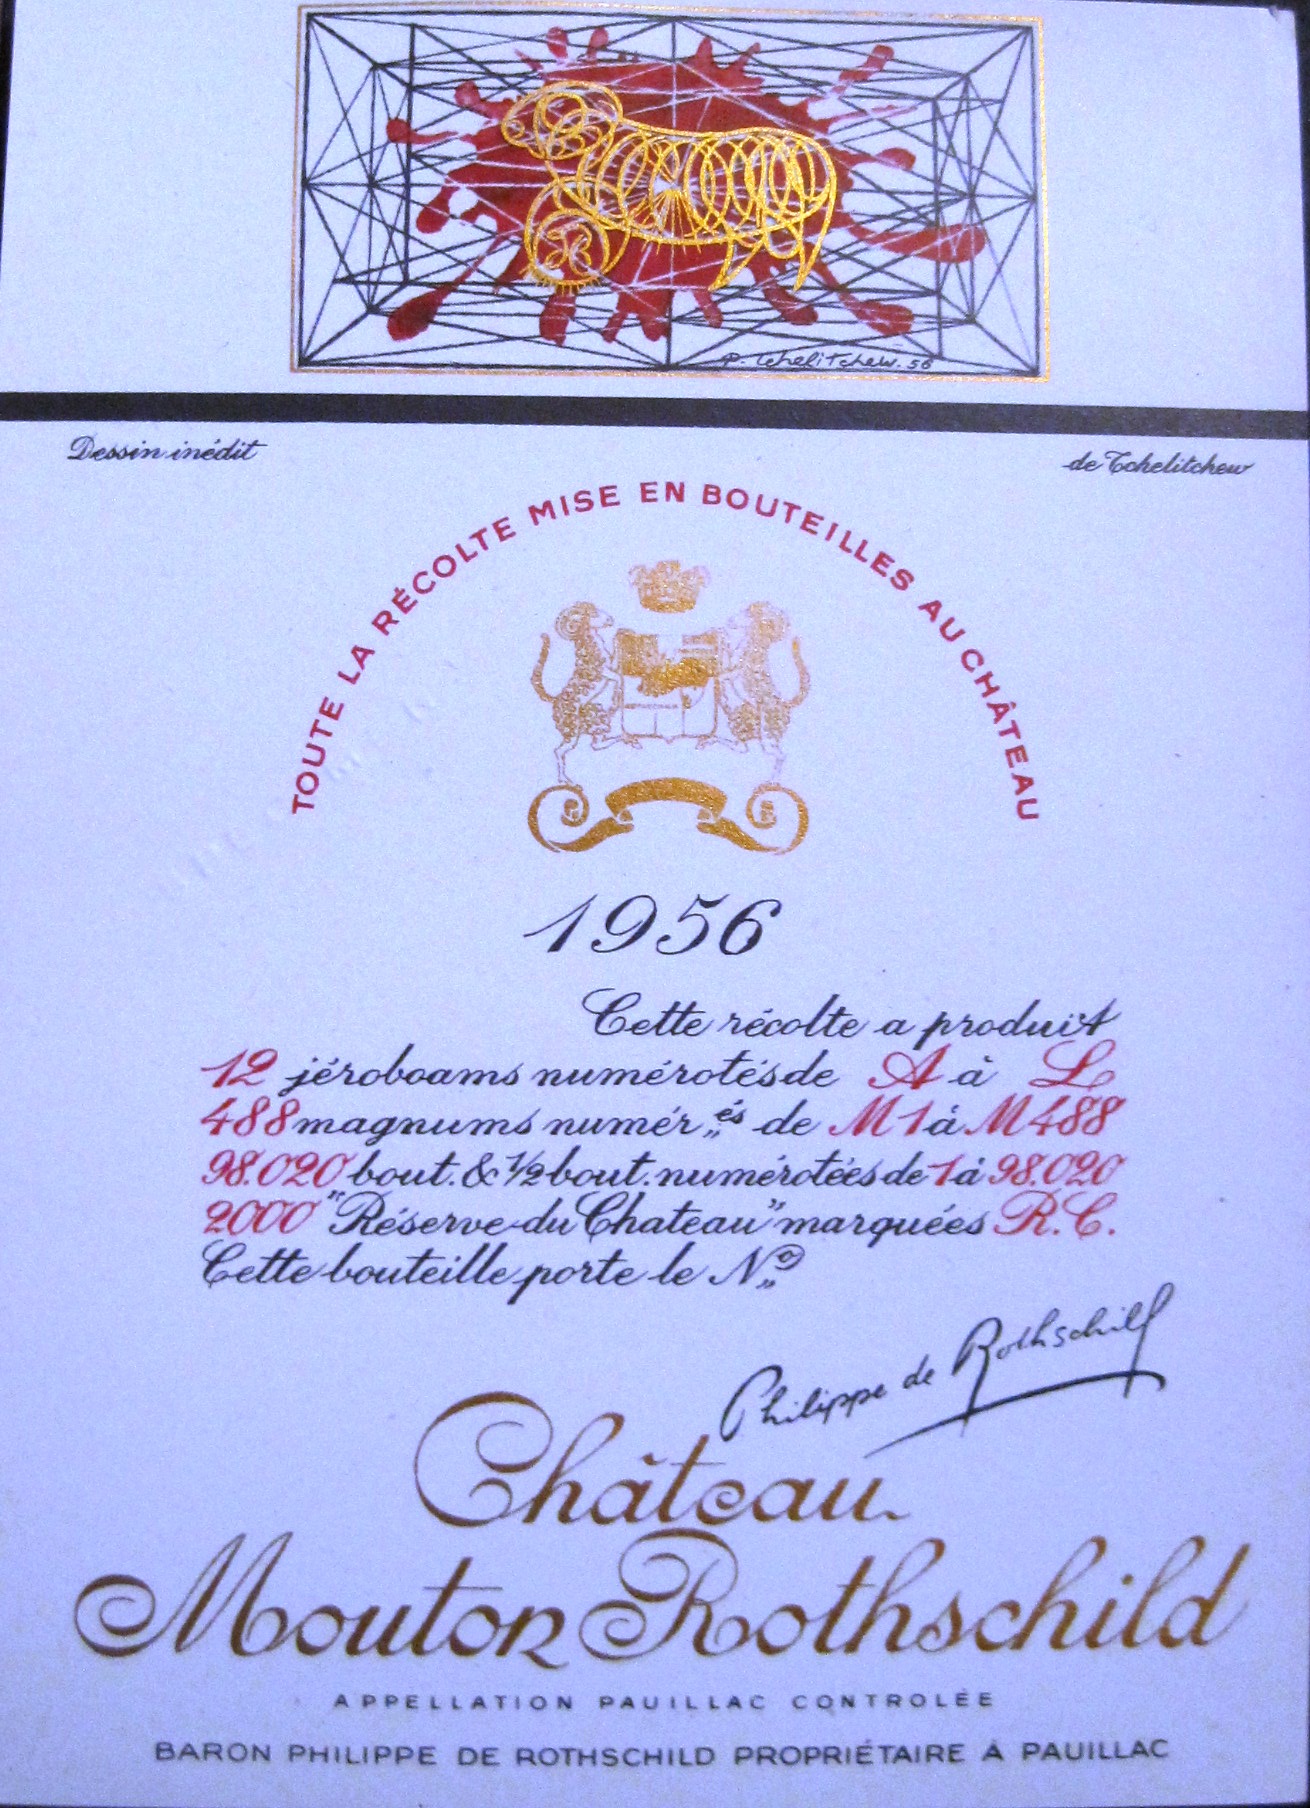 P. Tchelitchew. 56
Dessin inédit
de Tchelitchew
TOUTE LA RÉCOLTE MISE EN BOUTEILLES AU CHÂTEAU
1956
Cette récolte a produit
12 jéroboams numérotés de A à L
488 magnums numér„és de M1 à M488
98.020 bout. & 1/2 bout. numérotées de 1 à 98.020
2000 "Réserve du Chateau" marquées R.C.
Cette bouteille porte le No
Philippe de Rothschild
Château
Mouton Rothschild
APPELLATION PAUILLAC CONTROLÉE
BARON PHILIPPE DE ROTHSCHILD PROPRIÉTAIRE À PAUILLAC